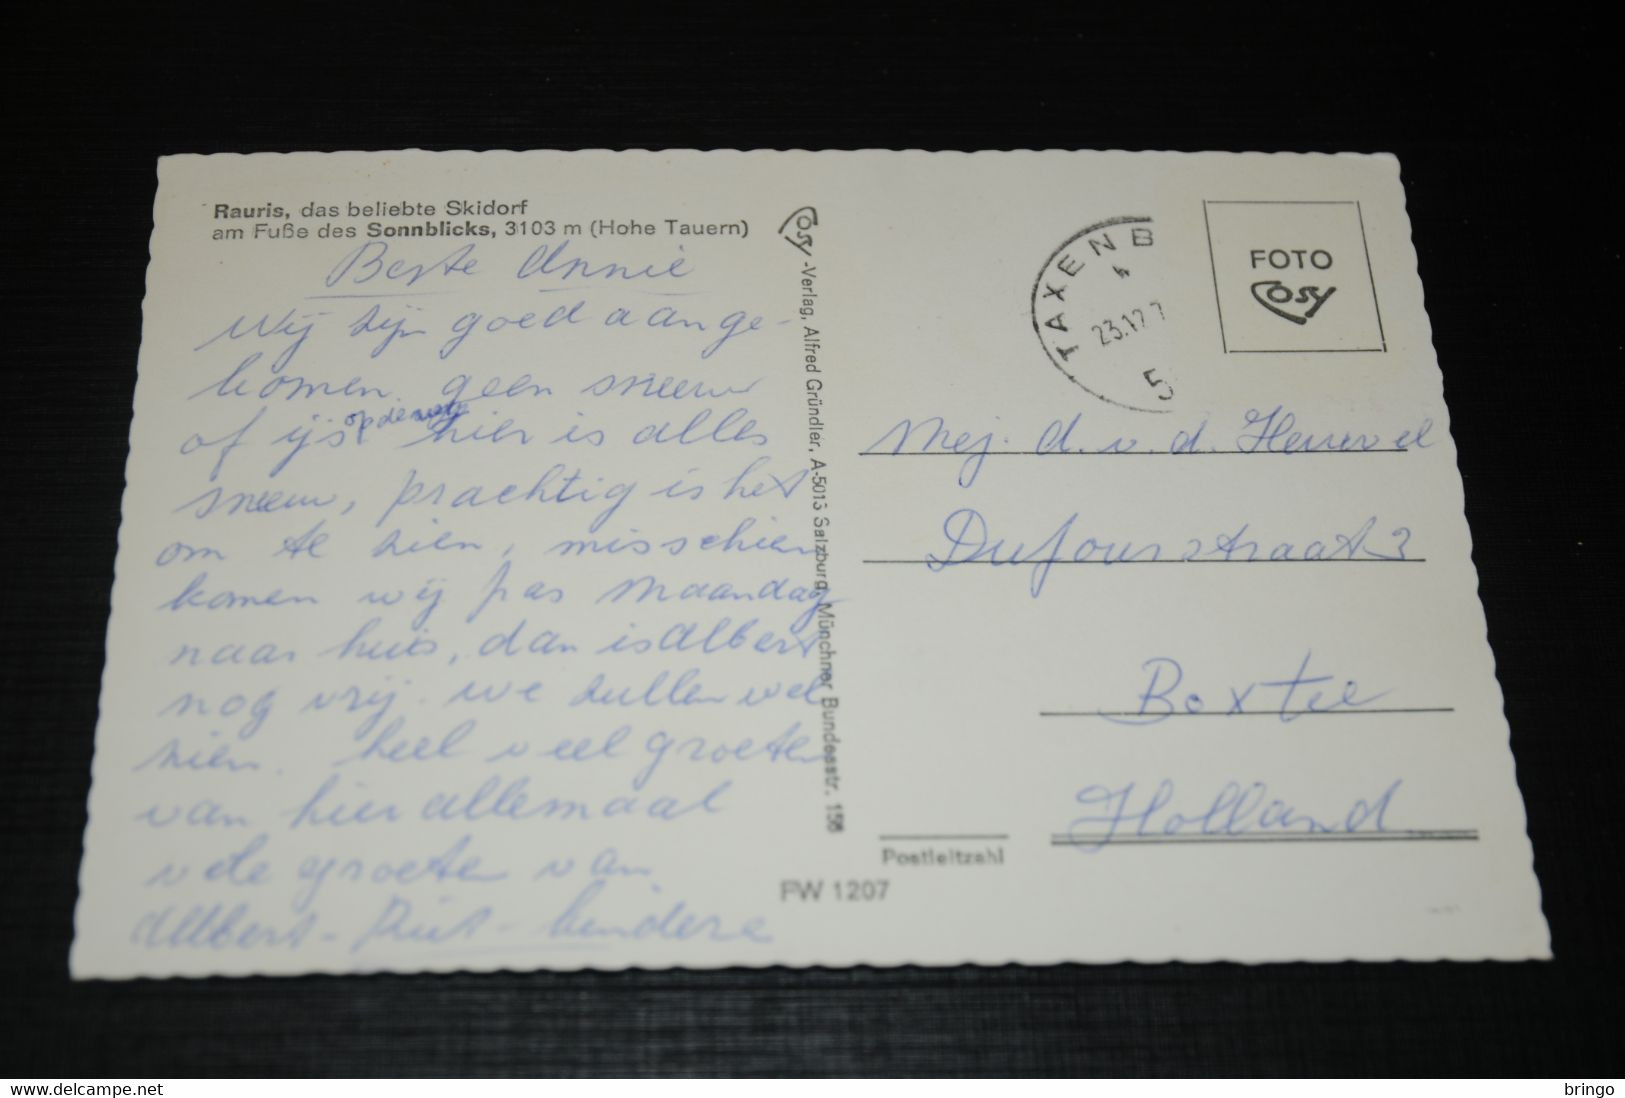 Rauris, das beliebte Skidorf
am Fuße des Sonnblicks, 3103 m (Hohe Tauern)
Beste Annie
Wij zijn goed aange-
komen. geen sneeuw
of ijs op de weg hier is alles
sneeuw, prachtig is het
om te zien, misschien
komen wij pas maandag
naar huis, dan is Albert
nog vrij. we zullen wel
zien. heel veel groeten
van hier allemaal
vele groeten van
Albert - Riet - kindere
Cosy-Verlag, Alfred Gründler, A-5013 Salzburg, Münchner Bundesstr. 156
FW 1207
TAXENB
23.12.7
5
FOTO
Cosy
Mej. A. v. d. Heuvel
Dufourstraat 3
Boxtel
Holland
Postleitzahl
bringo